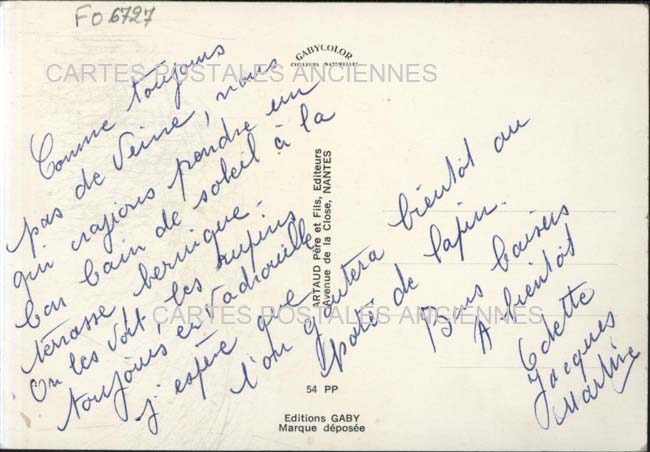 FO 6727
GABYCOLOR
COULEURS NATURELLES
CARTES POSTALES ANCIENNES
Comme toujours
pas de veine, nous
qui croyions prendre un
bon bain de soleil à la
terrasse bernique.
On les voit, les rupins
toujours en vadrouille
j'espère que
l'on goutera bientôt au
paté de lapin.
Bons baisers
A bientôt
Odette
Jacques
Martine
ARTAUD Père et Fils, Editeurs
Avenue de la Close, NANTES
CARTES POSTALES ANCIENNES
54 PP
Editions GABY
Marque déposée